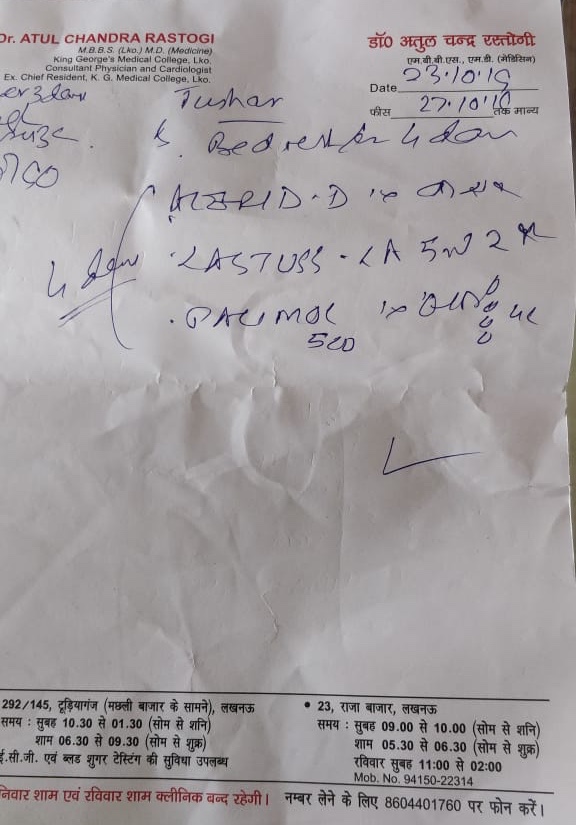 Dr. ATUL CHANDRA RASTOGI
M.B.B.S. (Lko.) M.D. (Medicine)
King George's Medical College, Lko.
Consultant Physician and Cardiologist
Ex. Chief Resident, K. G. Medical College, Lko.
डॉ० अतुल चन्द्र रस्तोगी
एम.बी.बी.एस., एम.डी. (मेडिसिन)
Date 23.10.19
फीस 27.10.19 तक मान्य
Tushar
Bed rest for 4 days
-D
LASTUSS - LA 5ml 2
PACIMOL
500
292/145, टूड़ियागंज (मछली बाजार के सामने), लखनऊ
समय : सुबह 10.30 से 01.30 (सोम से शनि)
शाम 06.30 से 09.30 (सोम से शुक्र)
ई.सी.जी. एवं ब्लड शुगर टेस्टिंग की सुविधा उपलब्ध
• 23, राजा बाजार, लखनऊ
समय : सुबह 09.00 से 10.00 (सोम से शनि)
शाम 05.30 से 06.30 (सोम से शुक्र)
रविवार सुबह 11:00 से 02:00
Mob. No. 94150-22314
शाम एवं रविवार शाम क्लीनिक बन्द रहेगी। नम्बर लेने के लिए 8604401760 पर फोन करें।